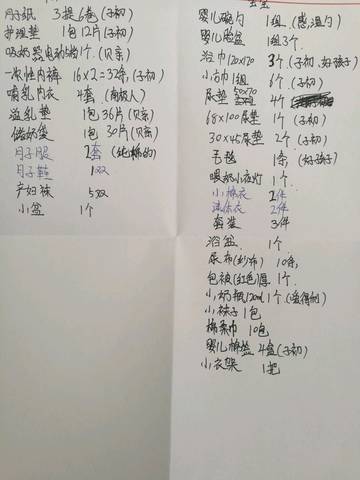 月子纸 3提6卷(子初)
护理垫 1包12片(子初)
吸奶器电动5档1个(贝亲)
一次性内裤 16×2=32条(子初)
哺乳内衣 4套(南极人)
溢乳垫 1包36片(贝亲)
储奶袋 1包30片(贝亲)
月子服 2套(纯棉的)
月子鞋 1双
产妇袜 5双
小盆 1个
宝宝
婴儿碗勺 1组(感温勺)
婴儿脸盆 1组3个
浴巾120×120 3个(子初,好孩子)
小方巾1组 6个(子初)
尿垫50×70 4个
68×100尿垫 1个(子初)
30×45尿垫 2个(子初)
毛毯 1条(好孩子)
喂奶小夜灯 1个
小棉衣 2件
连体衣 2件
套装 3件
浴盆 1个
尿布(纱布) 10条
包被(红色)厚 1个
小奶瓶120ml 1个(爱得利)
小袜子1包
棉柔巾 10包
婴儿棉签 4盒(子初)
小衣架 1把